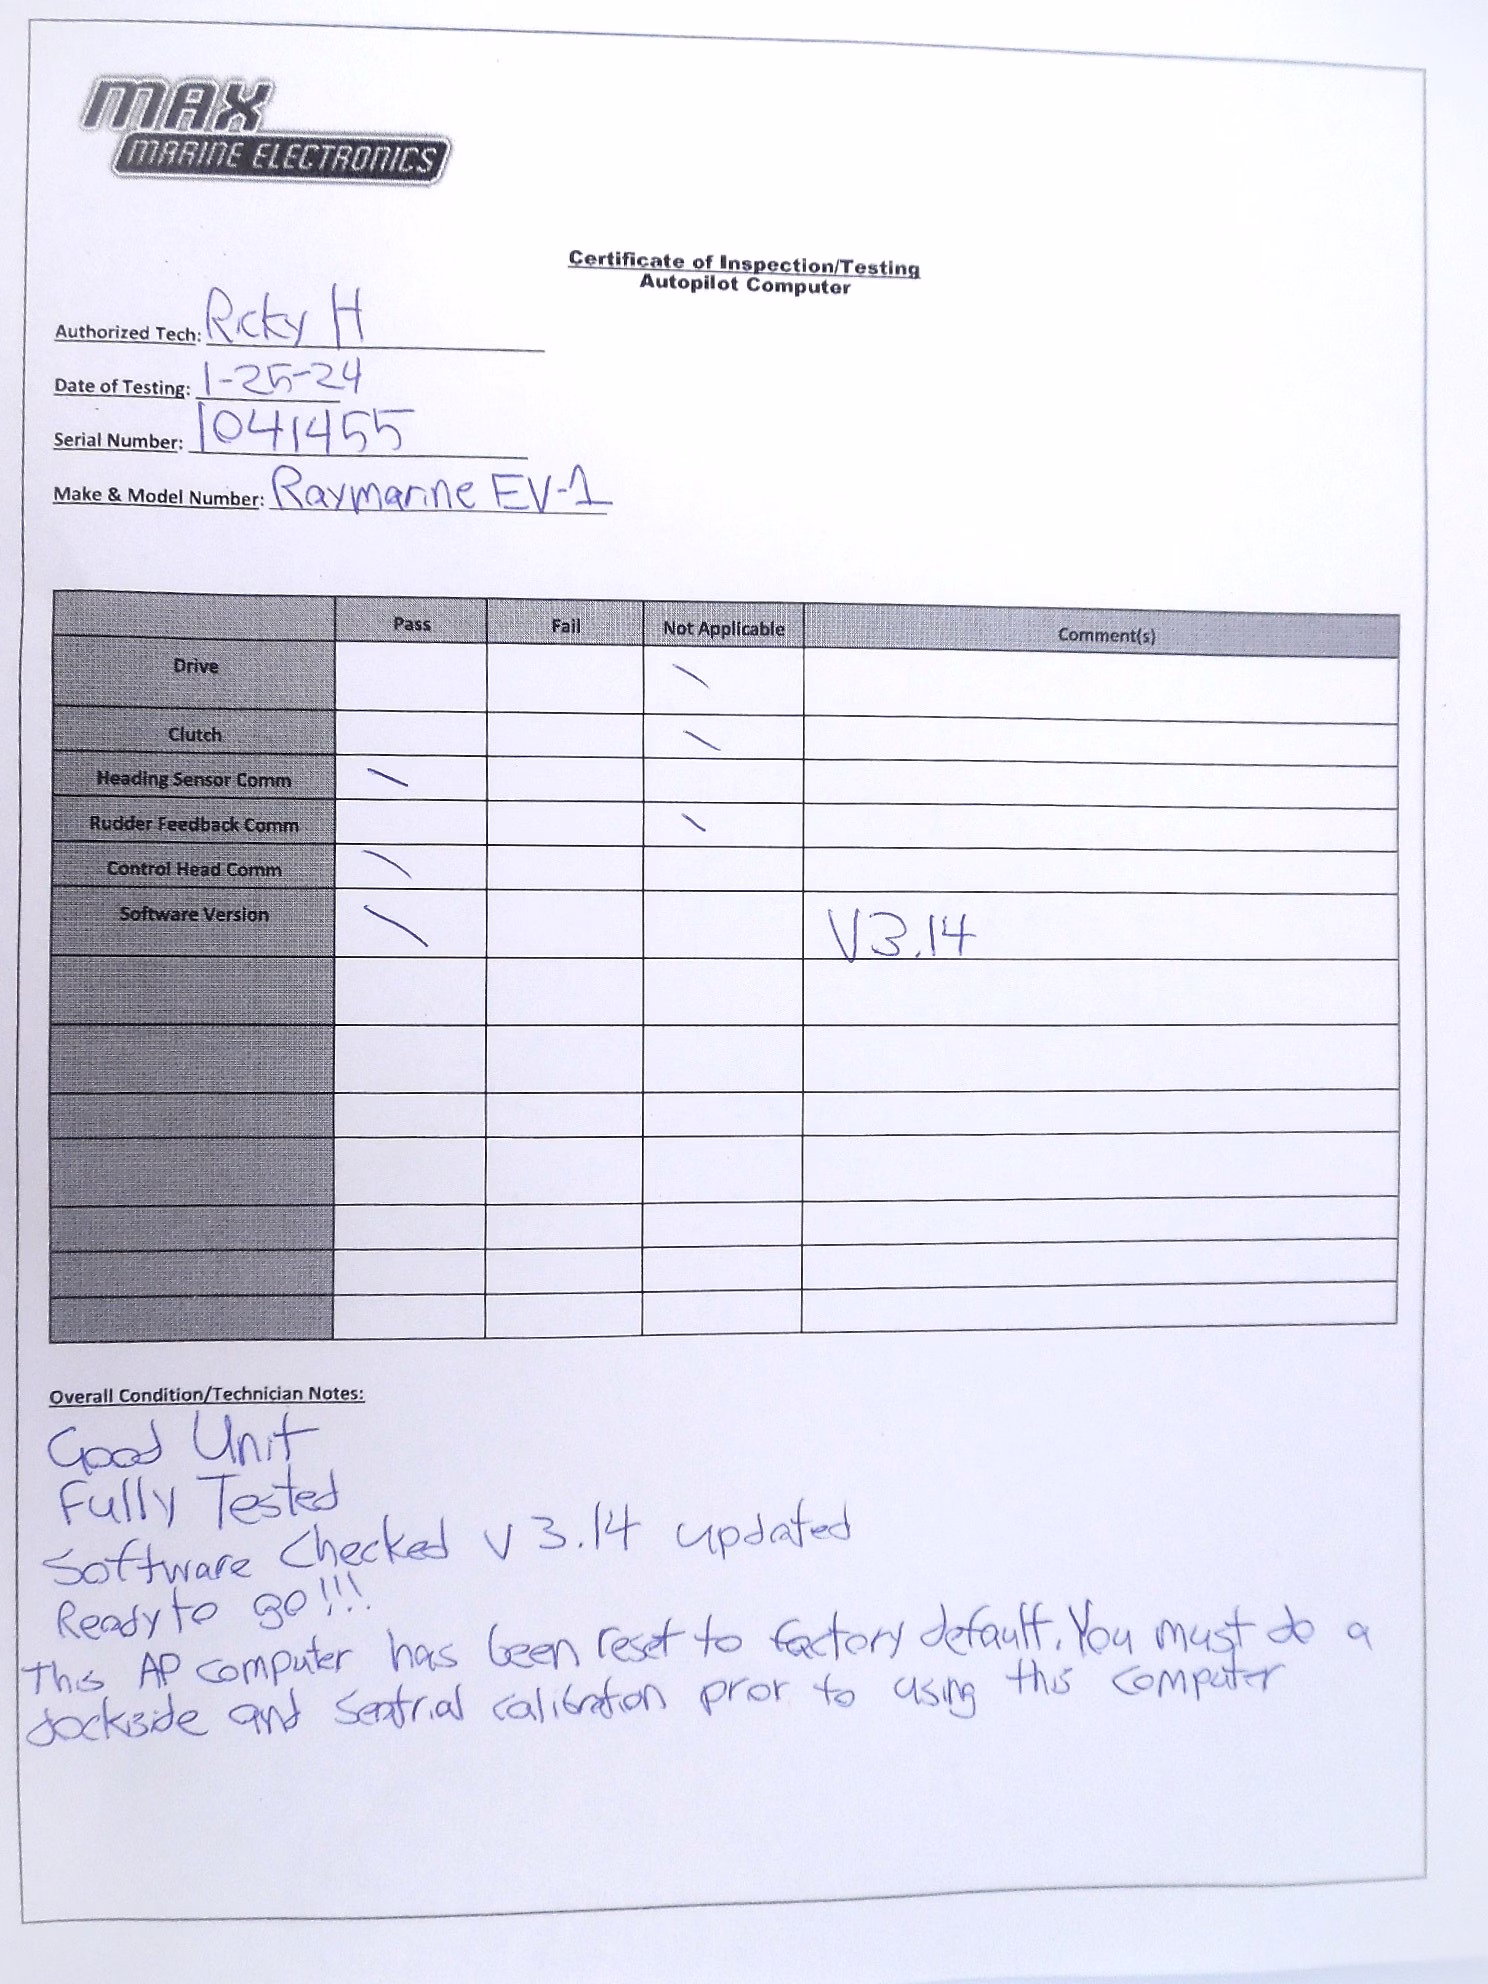 MAX
MARINE ELECTRONICS
Certificate of Inspection/Testing
Autopilot Computer
Authorized Tech: Ricky H
Date of Testing: 1-25-24
Serial Number: 1041455
Make & Model Number: Raymarine EV-1
Pass Fail Not Applicable Comment(s)
Drive \
Clutch \
Heading Sensor Comm \
Rudder Feedback Comm \
Control Head Comm \
Software Version \ V3.14
Overall Condition/Technician Notes:
Good Unit
Fully Tested
Software Checked V 3.14 updated
Ready to go!!!
This AP computer has been reset to factory default. You must do a
dockside and Seatrial calibration prior to using this computer